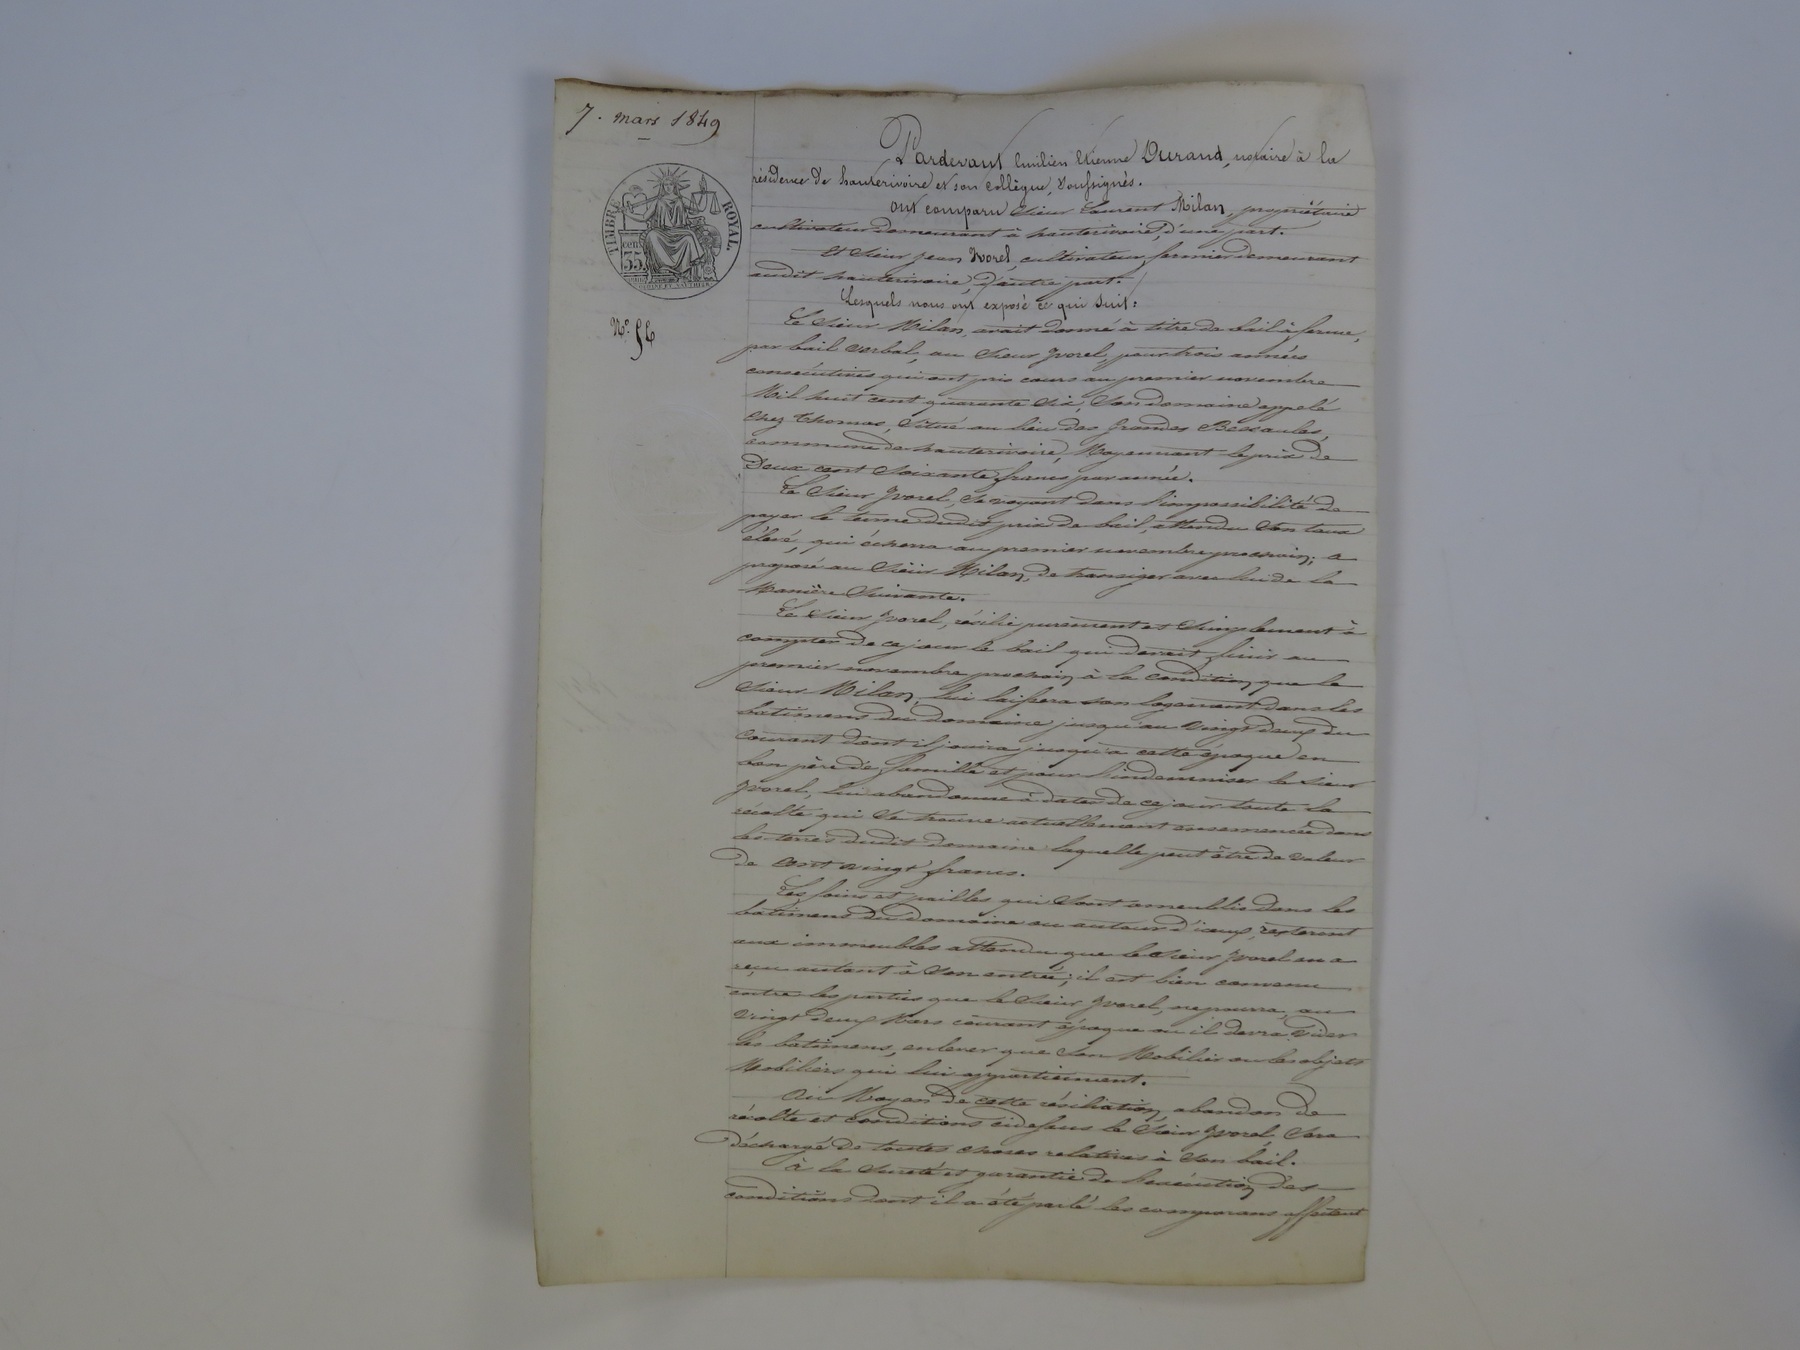 7. mars 1849
TIMBRE ROYAL
cen.
35
N°. 54
Pardevant Emilien Etienne Durand, notaire à la
résidence de hauterivoire et son collègue, soussignés.
Ont comparu Sieur Laurent Milan, propriétaire
cultivateur demeurant à hauterivoire, d'une part.
Et Sieur Jean Yvorel, cultivateur, fermier demeurant
audit hauterivoire, d'autre part.
Lesquels nous ont exposé ce qui suit:
Le Sieur Milan, avait donné à titre de bail à ferme,
par bail verbal, au Sieur Yvorel, pour trois années
consécutives qui ont pris cours au premier novembre
Mil huit cent quarante six, Son domaine appelé
chez Thomas, situé au lieu des grandes
commune de hauterivoire, Moyennant le prix de
Deux cent Soixante francs par année.
Le Sieur Yvorel, se voyant dans l'impossibilité de
payer le terme dudit prix de bail, attendu Son taux
élevé, qui écherra au premier novembre prochain; a
proposé au Sieur Milan, de transiger avec lui de la
Manière Suivante.
Le Sieur Yvorel, résilie purement et Simplement à
compter de ce jour le bail qui devait finir au
premier novembre prochain à la condition que le
Sieur Milan, lui laissera son logement dans les
batimens du domaine jusqu'au vingt deux du
courant dont il jouira jusqu'à cette époque en
bon père de famille et pour l'indemniser le Sieur
Yvorel, lui abandonne à dater de ce jour toute la
récolte qui se trouve actuellement ensemencée dans
les terres dudit domaine laquelle peut être de valeur
de Cent vingt francs.
Les foins et pailles qui Sont ameublis dans les
batimens du domaine ou autour d'iceux, resteront
aux immeubles attendu que le Sieur Yvorel en a
reçu autant à Son entrée; il est bien convenu
entre les parties que le Sieur Yvorel, ne pourra, au
vingt deux Mars courant époque ou il devra vider
les batimens, enlever que Son Mobilier ou les objets
Mobiliers qui lui appartiennent.
Au Moyen de cette résiliation, abandon de
récolte et conditions cidessus le Sieur Yvorel Sera
déchargé de toutes choses relatives à Son bail.
à la Sureté et garantie de l'exécution des
conditions dont il a été parlé les comparans affectent